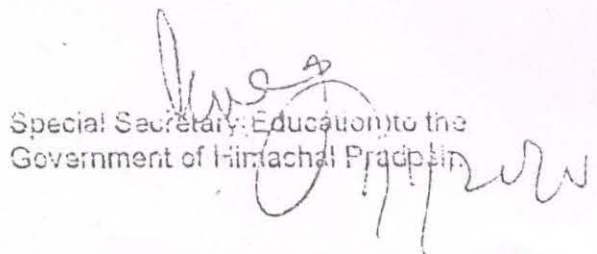 Special Secretary (Education) to the
Government of Himachal Pradesh